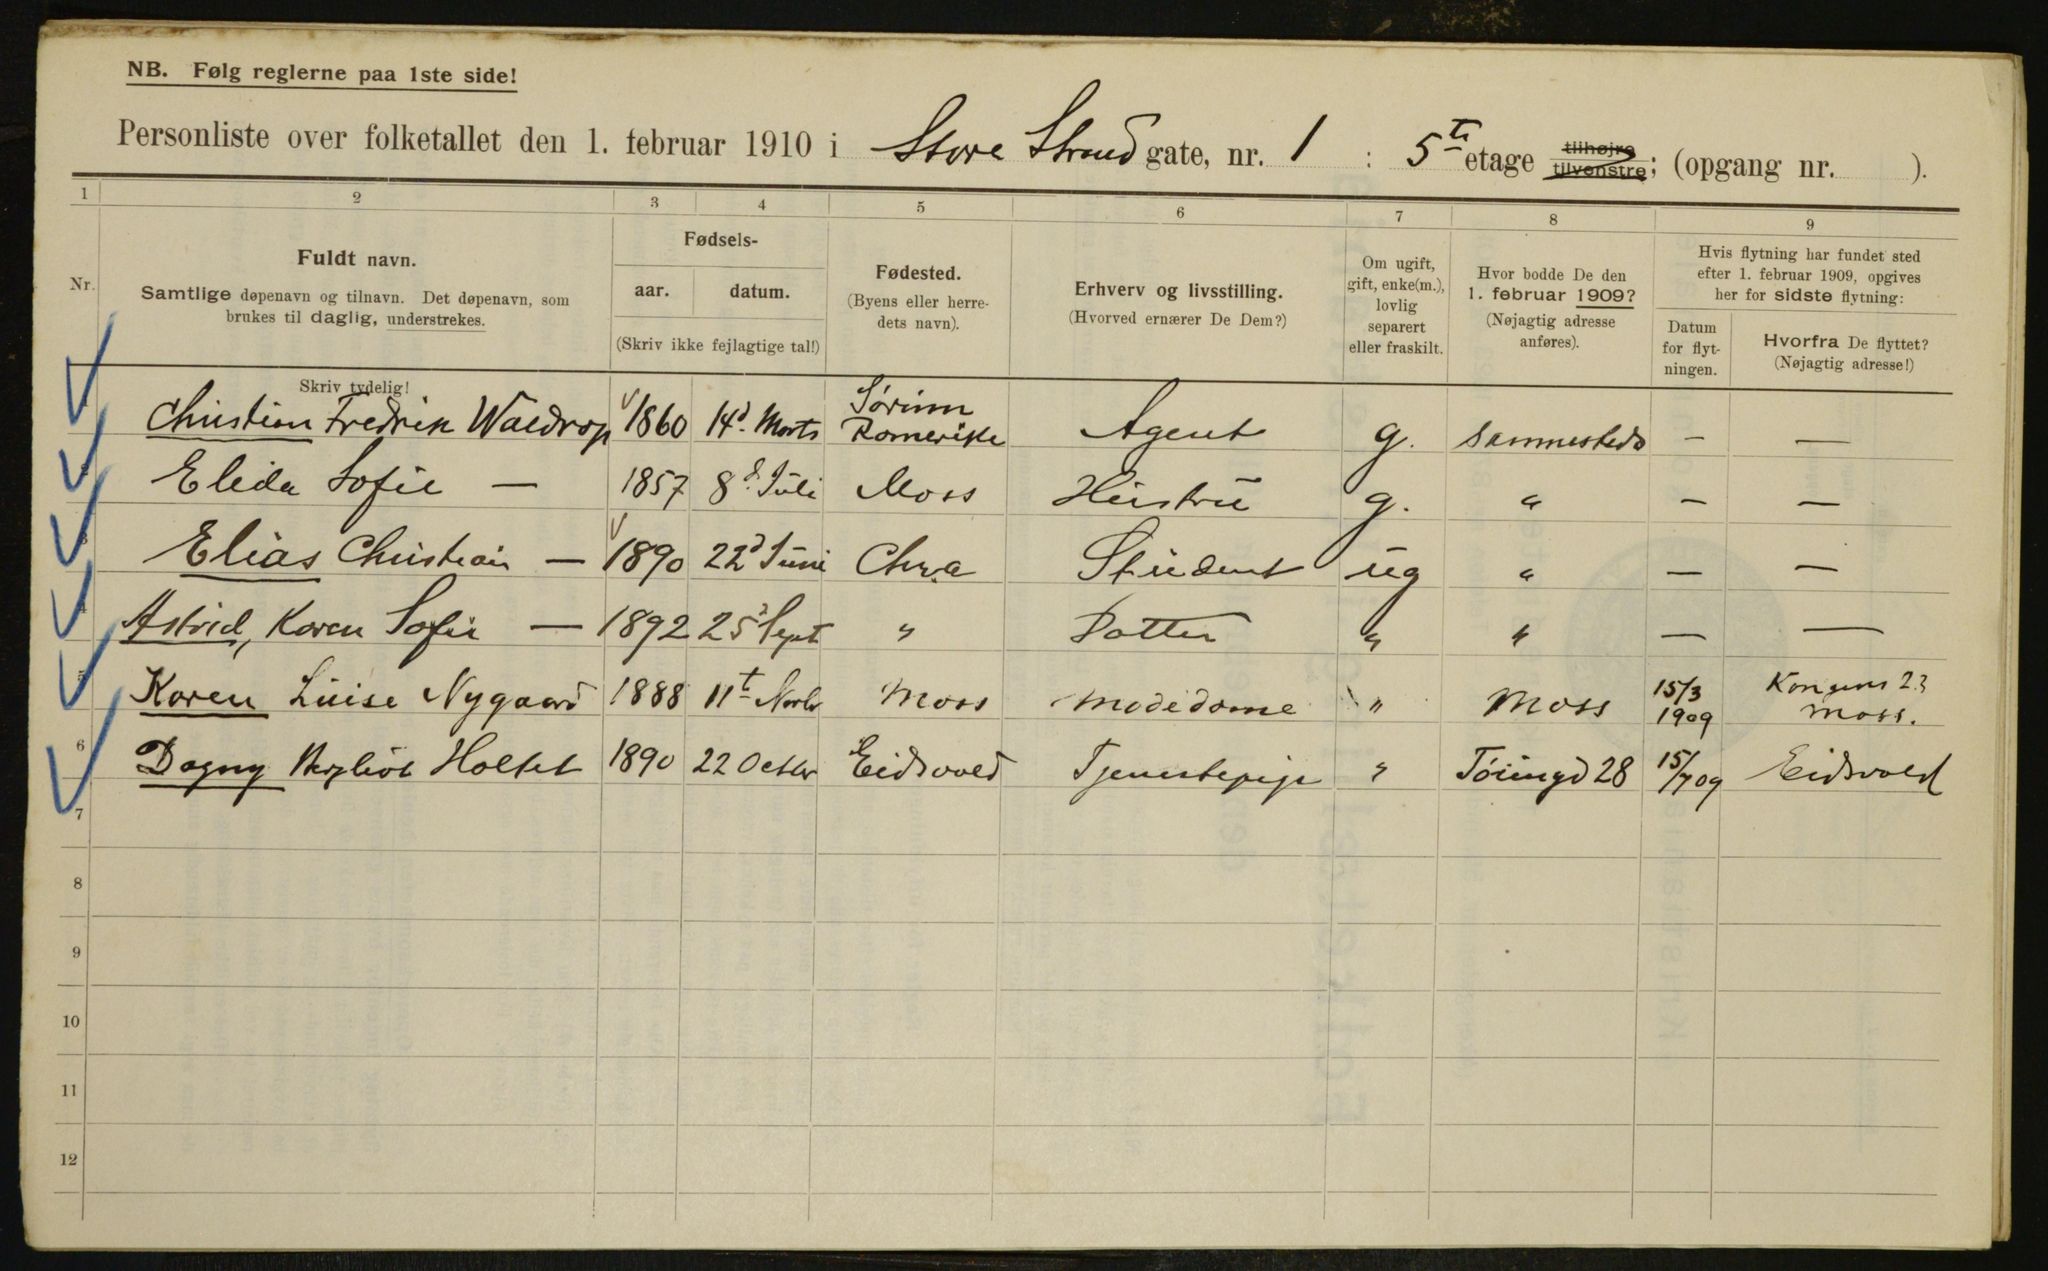 NB. Følg reglerne paa 1ste side!
Personliste over folketallet den 1. februar 1910 i Store Strand gate, nr. 1 : 5te etage tilhøjre tilvenstre; (opgang nr. ).
1 2 3 4 5 6 7 8 9
Nr.
Fuldt navn.
Samtlige døpenavn og tilnavn. Det døpenavn, som
brukes til daglig, understrekes.
Skriv tydelig!
Fødsels-
aar. datum.
(Skriv ikke fejlagtige tal!)
Fødested.
(Byens eller herre-
dets navn).
Erhverv og livsstilling.
(Hvorved ernærer De Dem?)
Om ugift,
gift, enke(m.),
lovlig
separert
eller fraskilt.
Hvor bodde De den
1. februar 1909?
(Nøjagtig adresse
anføres).
Hvis flytning har fundet sted
efter 1. februar 1909, opgives
her for sidste flytning:
Datum
for flyt-
ningen.
Hvorfra De flyttet?
(Nøjagtig adresse!)
Christian Fredrik Waldrop 1860 14d Marts Sørum Romerike Agent g. sammesteds — —
2 Elida Sofie — 1857 8d Juli Moss Hustru g. " — —
3 Elias Christian — 1890 22d Juni Chra Student ug " — —
4 Astrid, Karen Sofie — 1892 25d Sept " Datter " " — —
5 Karen Luise Nygaard 1888 11t Novbr Moss Modedame " Moss 15/3 1909 Kongens 23 Moss.
6 Dagny Holtet 1890 22 Octbr Eidsvold Tjenestepige " 28 15/7 09 Eidsvold
7
8
9
10
11
12